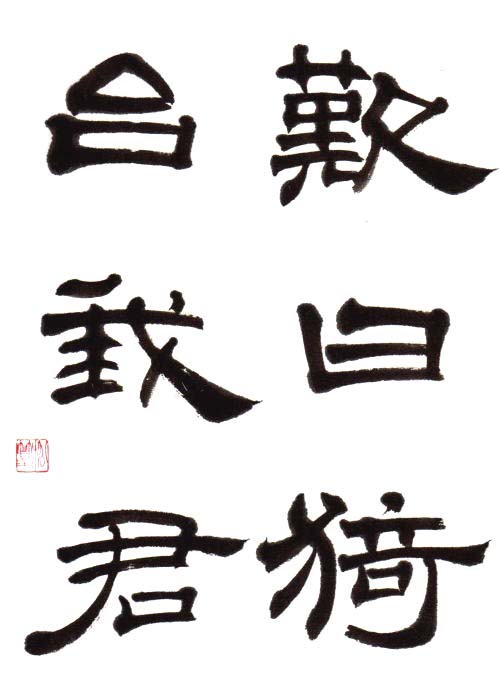 歎曰猗
台我君